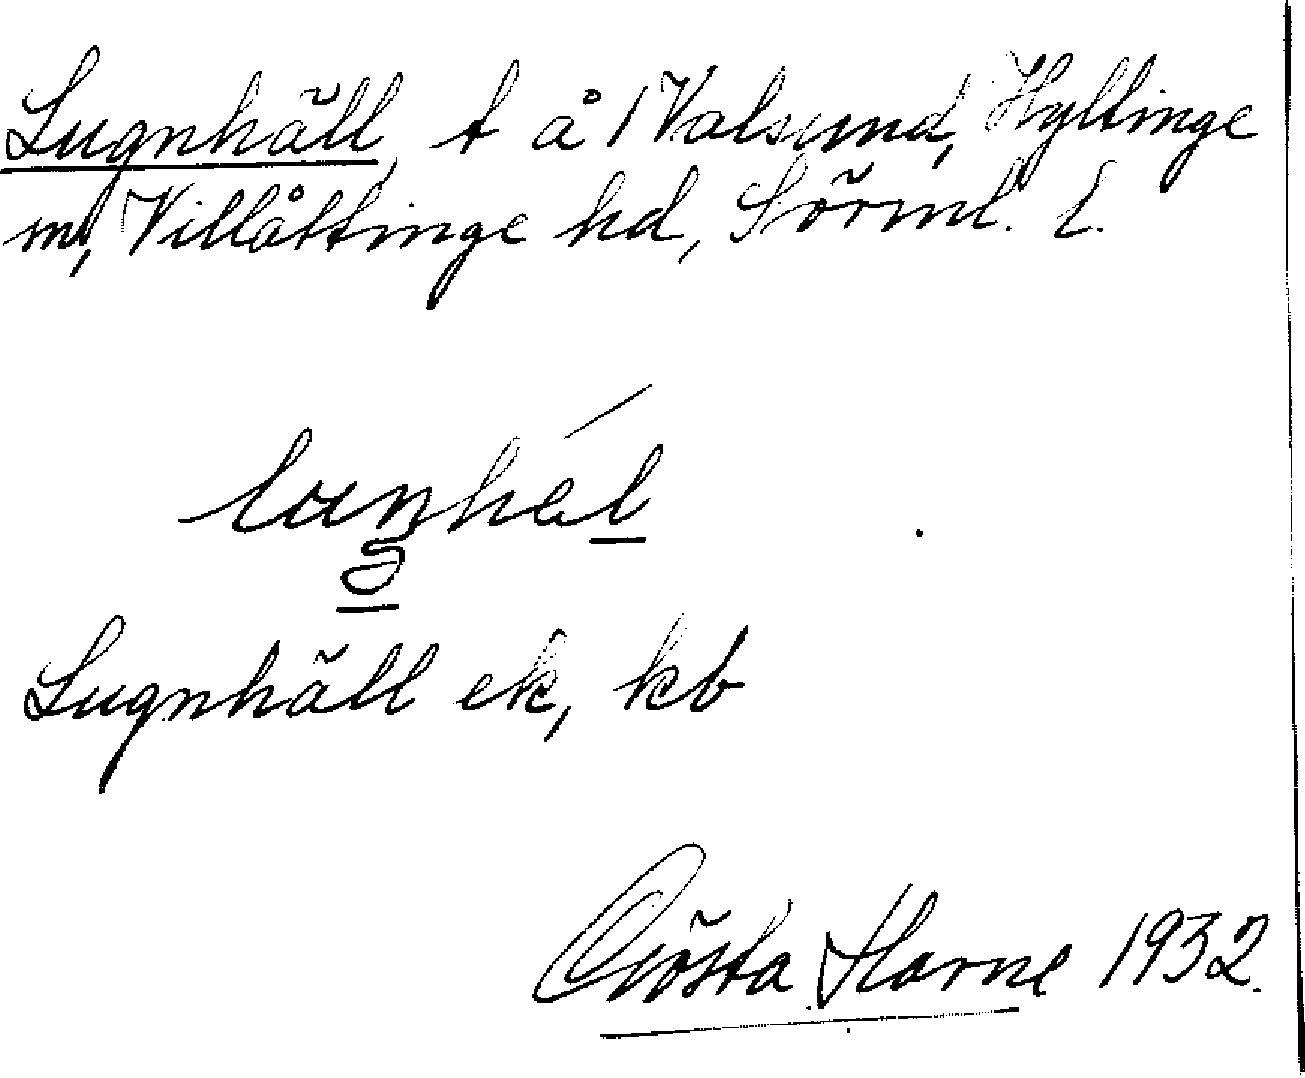 Lugnhäll, t å 1 Valsund, Hyltinge
sn, Villåttinge hd, Sörml. l.
Lugnhäll ek, kb
Gösta Harne 1932.